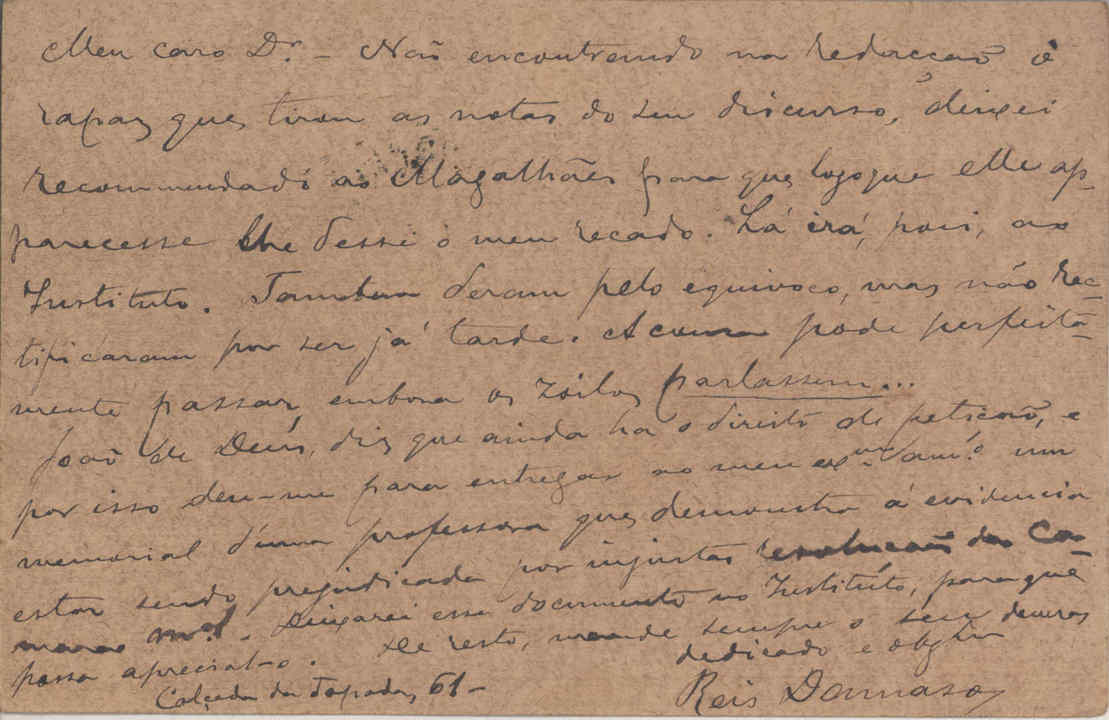 Meu caro Dr. – Não encontrando na redacção o
rapaz que tirou as notas do seu discurso, deixei
recommendado ao Magalhães para que logo que elle ap-
parecesse lhe désse o meu recado. Lá irá, pois, ao
Instituto. Tambem deram pelo equivoco, mas não rec-
tificaram por ser já tarde. A cousa pode perfeita-
mente passar, embora os zoilos parlassem...
João de Deus, diz que ainda ha o direito de petição, e
por isso deu-me para entregar ao meu exmo. am.o um
memorial d'uma professora que demonstra á evidencia
estar sendo prejudicada por injustas resolucão da Ca-
mara mal. Deixarei esse documento no Instituto, para que
possa aprecial-o. De resto, mande sempre o seu deveras
dedicado e obgdmo
Calçada da Tapada, 61 –
Reis Damaso